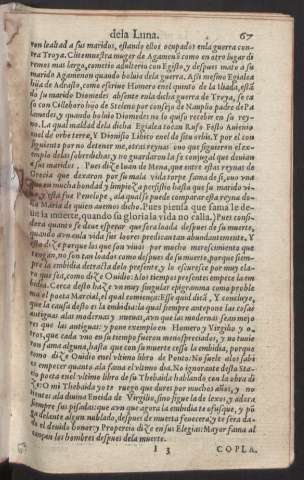 dela Luna. 67
ron lealtad a sus maridos, estando ellos ocupados enla guerra con-
tra Troya. Clitemnestra muger de Agamenõ como en otro lugar di
remos mas largo, cometio adulterio con Egisto, y despues mato a su
marido Agamenon quando boluio dela guerra. Assi mesmo Egialea
hija de Adrasto, como escriue Homero enel quinto de la Iliada, estã
do su marido Diomedes absente enla dicha guerra de Troya, se ca
so con Cilleboro hijo de Stelemo por consejo de Nauplio padre de Pa
lamedes, y quando boluio Diomedes no lo quiso recebir en su rey-
no. La qual maldad dela dicha Egialea tocan Rufo Festo Auieno
enel de orbe terrę, Y Dionisio Libro enel de situ orbis, Y por el con
siguiente por no detener me, otras reynas vuo que siguieron el ex-
emplo destas soberdichas, y no guardaron la fe conjugal que deuian
a sus maridos. Pues dize Iuan de Mena, que entre estas reynas de
Grecia que dexaron por su mala vida torpe fama de si, vuo vna
que en mucha bondad y limpieza persistio hasta que su marido vi-
no: y esta fue Penelope, ala qual se puede comparar esta reyna do-
ña Maria de quien auemos dicho. Pues piensa que fama le de-
ue la muerte, quando su gloria la vida no calla.) Pues consi-
dera quanto se deue esperar que sera loada despues de su muerte,
quando aun esta vida sus loores predican tan abundantemente. Y
esto dize porque los que son viuos por mucho merescimiento que
tengan, no son tan loados como despues de su muerte, porque siem-
pre la embidia detrasta delo presente, y lo escuresce por muy cla-
ro que sea, como dize Ouidio: Alos tiempos presentes empece la em
bidia. Cerca desto haze vn muy singular epigramma como proble
ma el poeta Marcial, el qual comiença: Esse quid dicã, Y concluye,
que la causa desto es la embidia: la qual siempre antepone las cosas
antiguas alas modernas y nueuas, aun que las modernas sean mejo
res que las antiguas: y pone exemplo en Homero y Virgilio y o-
tros, que cada vno en su tiempo fueron menospreciados, y no tuuie
ron fama alguna, hasta que con su muerte cesso la embidia, porque
como dize Ouidio enel vltimo libro de Ponto: No suele alos sabi
os empecer quanto ala fama el vltimo dia. No ignorante desto Sta-
cio poeta enel vltimo libro de su Thebaida hablando con la obra di
ze: O mi Thebaida te ruego que dures por muchos años, y no
tientes ala diuina Eneida de Virgilio, sino sigue la de lexos, y adora
siempre sus pisadas: que aun que agora la embidia te ofusque, y põ
ga delante algun nublado, despues de muerta fenecera, y te sera da-
do el deuido honor: y Propercio dize en sus Elegias: Mayor fama al
cançan los hombres despues dela muerte.
I 3 COPLA.